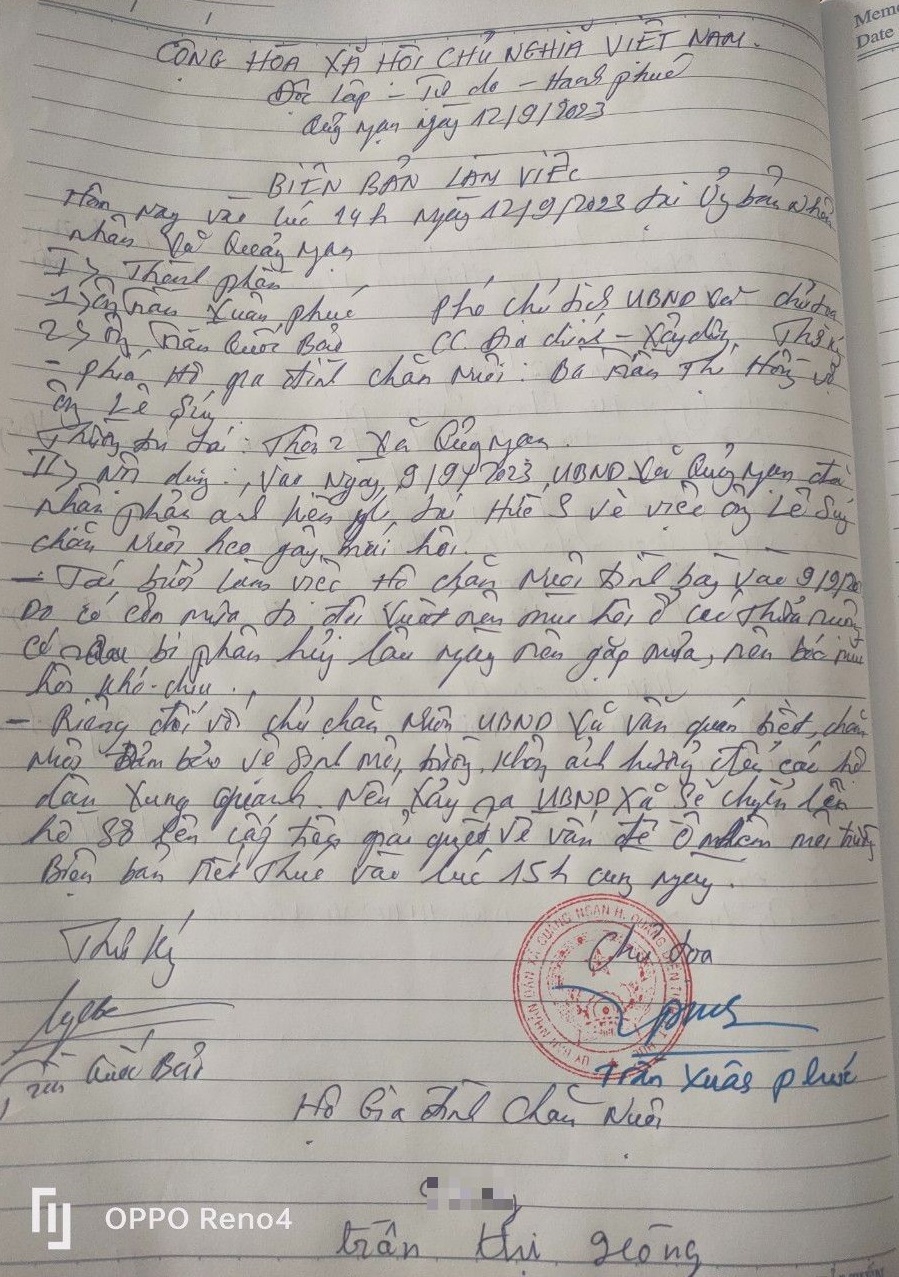 Memo
Date
CÔNG HÒA XÃ HÔI CHỦ NGHIÃ VIỆT NAM.
Độc lập - Tự do - Hạnh phúc
Quảng Ngạn ngày 12/9/2023
BIÊN BẢN LÀM VIỆC
Hôm nay vào lúc 14h ngày 12/9/2023 tại Ủy ban Nhân
nhân Xã Quảng Ngạn
I> Thành phần
1> Ông Trần Xuân Phúc Phó chủ tịch UBND Xã chủ tọa
2> Ông Trần Quốc Bảo CC. Địa chính - Xây dựng. Thư ký
- Phía Hộ gia đình chăn nuôi: Bà Trần Thị Hồng vợ
ông Lê Súy
Thường trú tại: Thôn 2 Xã Quảng Ngạn.
II> Nội dung: Vào Ngày 9/9/2023 UBND Xã Quảng Ngạn đã
nhận phản ánh hiện tại Huế S về việc ông Lê Súy
chăn nuôi heo gây mùi hôi.
- Tại buổi làm việc Hộ chăn nuôi trình bày vào 9/9/20
Do có cơn mưa nên mùi hôi ở các thửa ruộng
có bị phân hủy lâu ngày nên gặp mưa, nên bóc mùi
hôi khó chịu.
- Riêng đối với chủ chăn nuôi UBND Xã vẫn quán triệt, chăn
nuôi Đảm bảo vệ sinh môi trường, không ảnh hưởng đến các hộ
dân xung quanh. Nếu xảy ra UBND Xã sẽ chuyển lên
hồ sơ lên cấp trên giải quyết về vấn đề ô nhiễm môi trường
Biên bản kết thúc vào lúc 15h cùng ngày.
Thư ký Chủ tọa
ỦY BAN NHÂN DÂN XÃ QUẢNG NGẠN H. QUẢNG ĐIỀN
Trần Quốc Bảo Trần Xuân Phúc
Hộ Gia Đình Chăn Nuôi
trần thị Hồng
OPPO Reno4